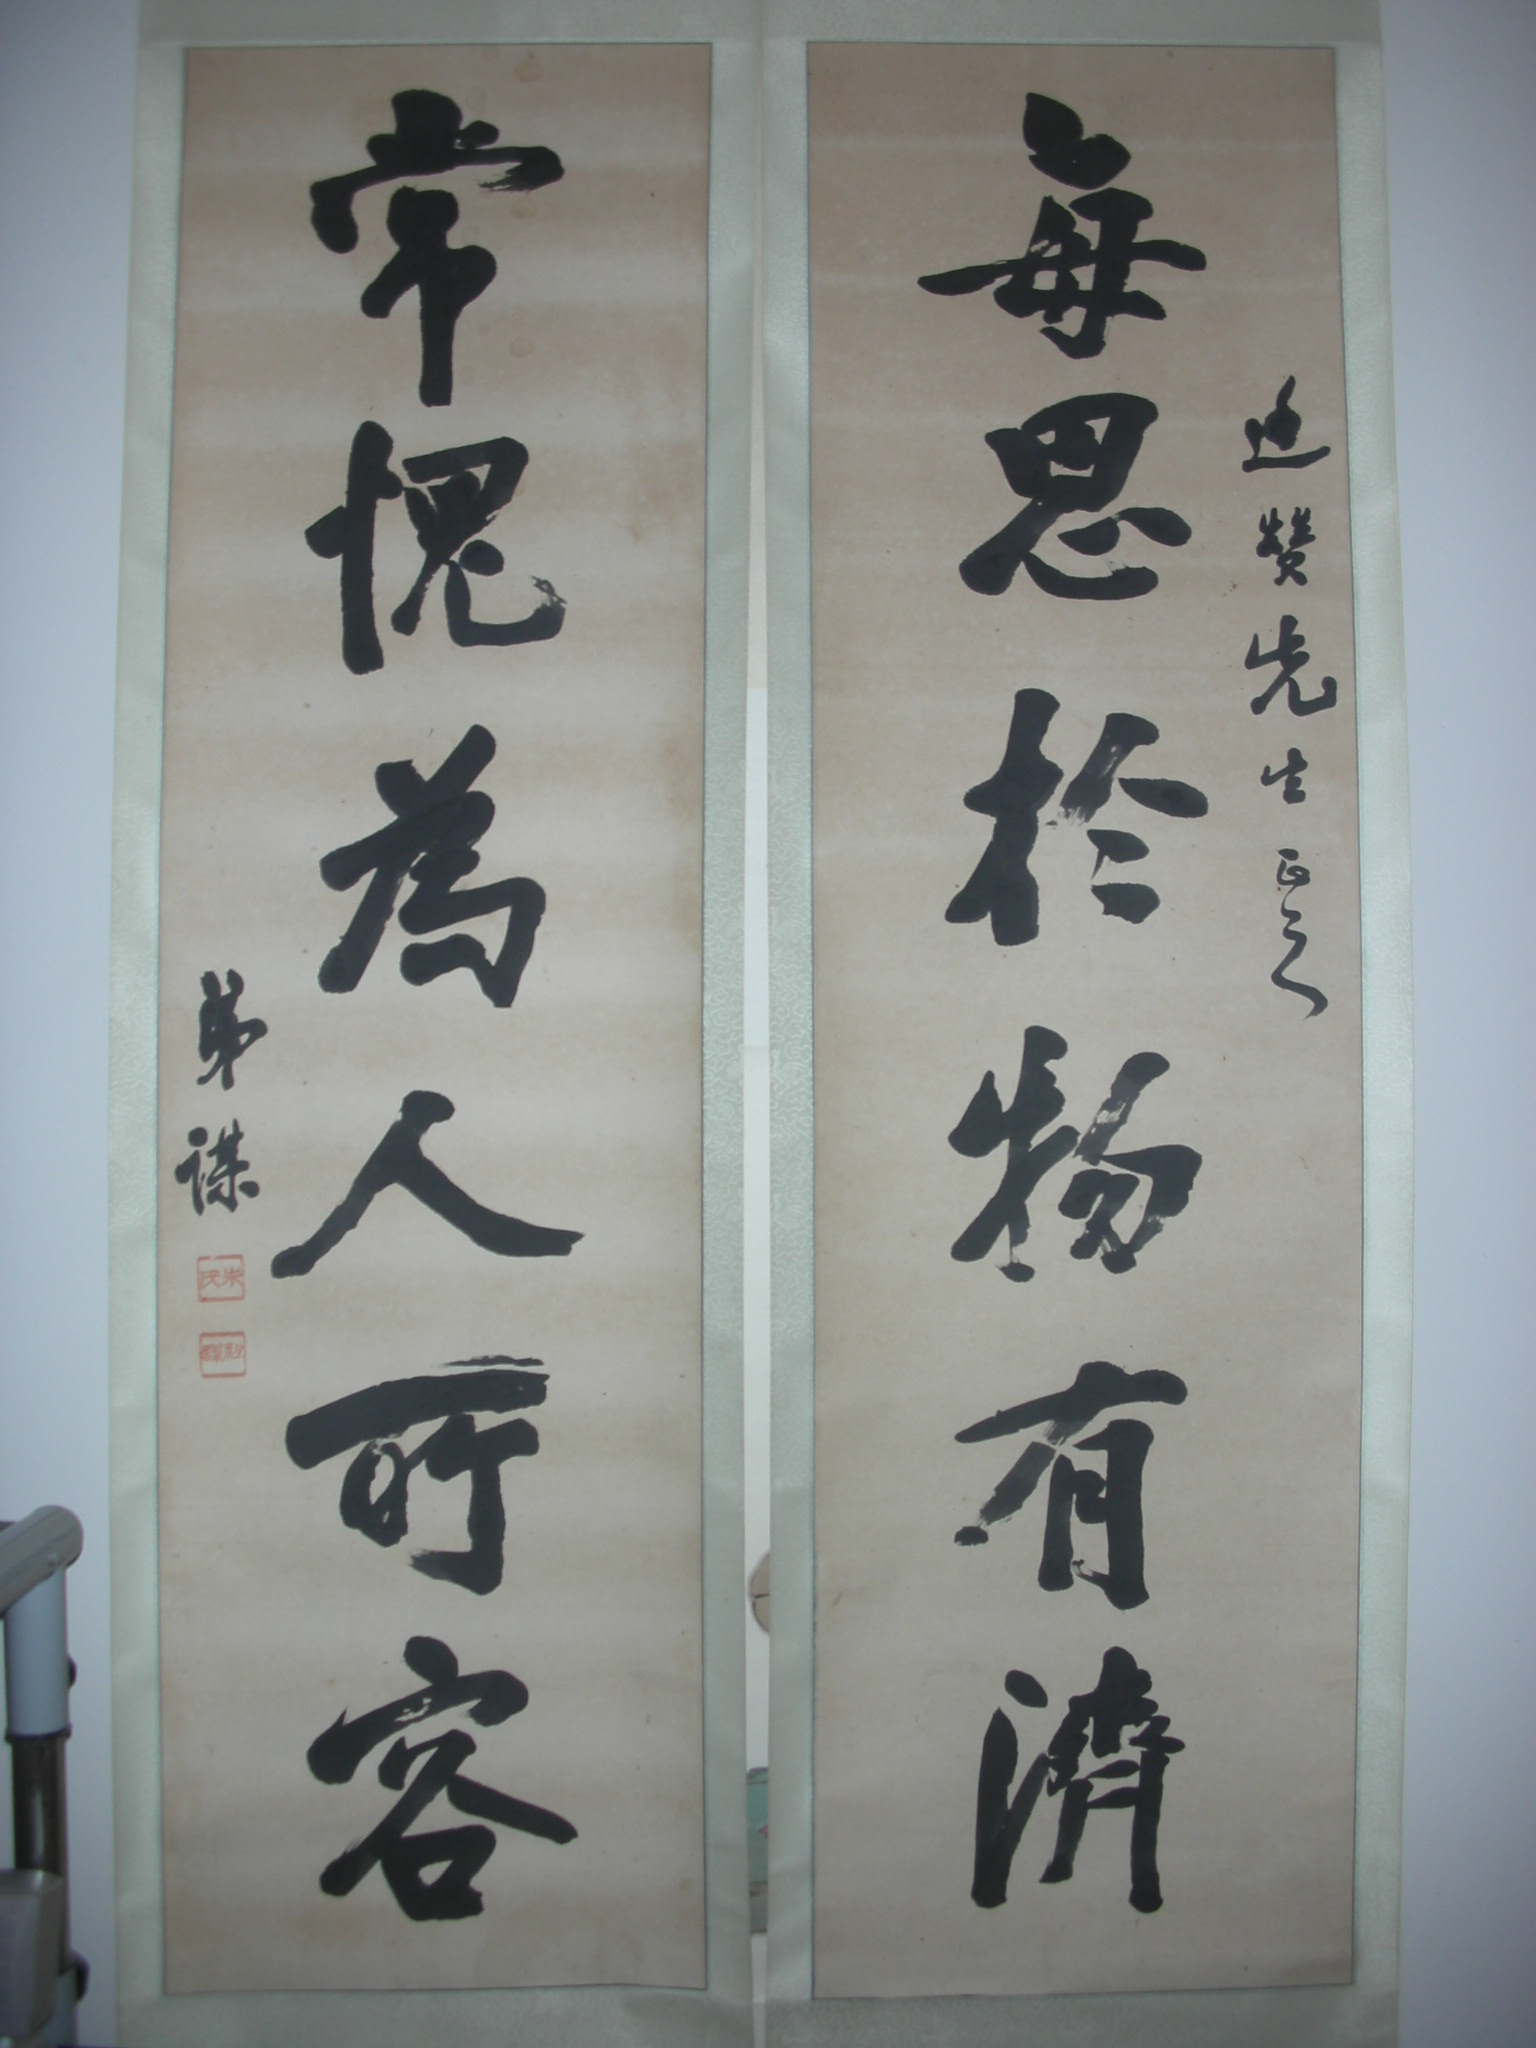 贊先生正之
每思於物有濟
常愧為人所容
弟謀